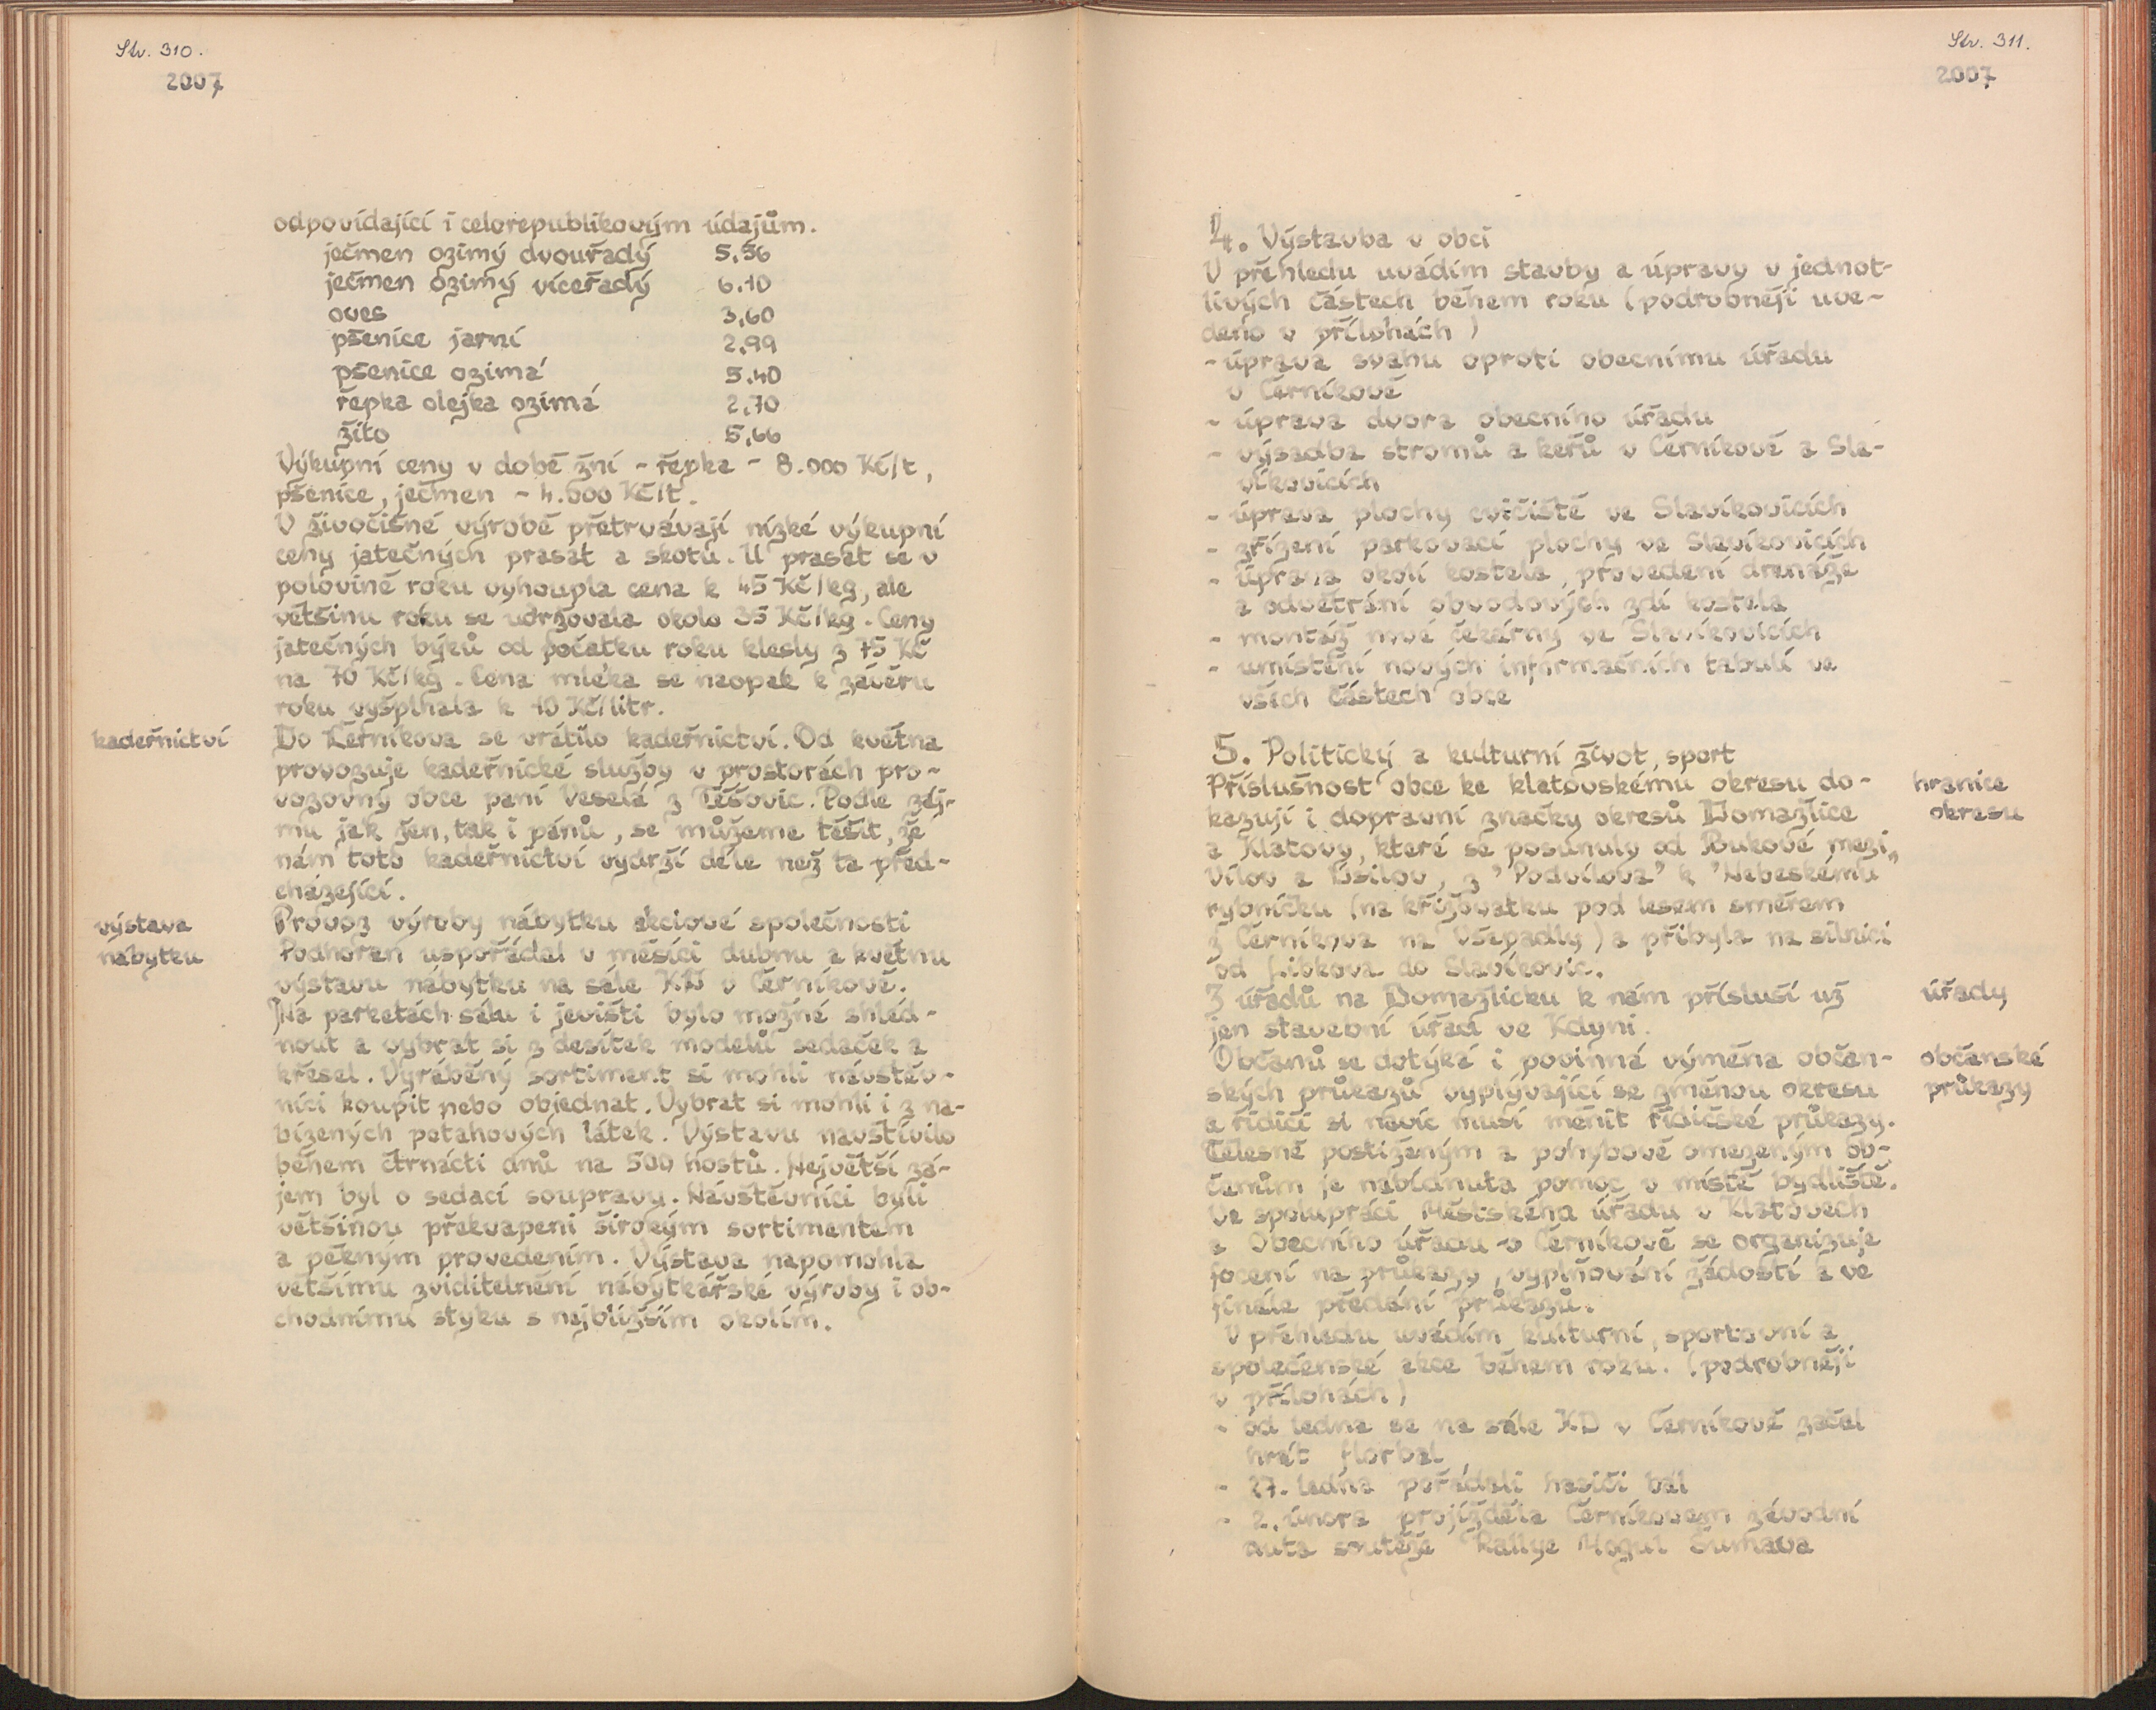 Str. 310.
2007
odpovídající i celorepublikovým údajům.
ječmen ozimý dvouřadý 5,56
ječmen ozimý víceřadý 6,10
oves 3,60
pšenice jarní 2,99
pšenice ozimá 5,40
řepka olejka ozimá 2,70
žito 5,66
Výkupní ceny v době žní - řepka - 8.000 Kč/t,
pšenice, ječmen - 4.600 Kč/t.
V živočišné výrobě přetrvávají nízké výkupní
ceny jatečných prasat a skotu. U prasat se v
polovině roku vyhoupla cena k 45 Kč/kg, ale
většinu roku se udržovala okolo 35 Kč/kg. Ceny
jatečných býků od počátku roku klesly z 75 Kč
na 70 Kč/kg. Cena mléka se naopak k závěru
roku vyšplhala k 10 Kč/litr.
kadeřnictví
Do Černíkova se vrátilo kadeřnictví. Od května
provozuje kadeřnické služby v prostorách pro-
vozovny obce paní Veselá z Těšovic. Podle záj-
mu jak žen, tak i pánů, se můžeme těšit, že
nám toto kadeřnictví vydrží déle než ta před-
cházející.
výstava
nábytku
Provoz výroby nábytku akciové společnosti
Podhoran uspořádal v měsíci dubnu a květnu
výstavu nábytku na sále KD v Černíkově.
Na parketách sálu i jevišti bylo možné shléd-
nout a vybrat si z desítek modelů sedaček a
křesel. Vyráběný sortiment si mohli návštěv-
níci koupit nebo objednat. Vybrat si mohli i z na-
bízených potahových látek. Výstavu navštívilo
během čtrnácti dnů na 500 hostů. Největší zá-
jem byl o sedací soupravy. Návštěvníci byli
většinou překvapeni širokým sortimentem
a pěkným provedením. Výstava napomohla
většímu zviditelnění nábytkářské výroby i ob-
chodnímu styku s nejbližším okolím.
Str. 311.
2007
4. Výstavba v obci
V přehledu uvádím stavby a úpravy v jednot-
livých částech během roku (podrobněji uve-
deno v přílohách)
- úprava svahu oproti obecnímu úřadu
v Černíkově
- úprava dvora obecního úřadu
- výsadba stromů a keřů v Černíkově a Sla-
víkovicích
- úprava plochy cvičiště ve Slavíkovicích
- zřízení parkovací plochy ve Slavíkovicích
- úprava okolí kostela, provedení drenáže
a odvětrání obvodových zdí kostela
- montáž nové čekárny ve Slavíkovicích
- umístění nových informačních tabulí ve
všich částech obce
5. Politický a kulturní život, sport
Příslušnost obce ke klatovskému okresu do-
kazují i dopravní značky okresů Domažlice
a Klatovy, které se posunuly od Pukové mezi
Vílov a Úsilov, z "Podvílova" k "Nebeskému"
rybníčku (na křižovatku pod lesem směrem
z Černíkova na Všepadly) a přibyla na silnici
od Libkova do Slavíkovic.
hranice
okresu
Z úřadů na Domažlicku k nám přísluší už
jen stavební úřad ve Kdyni.
úřady
Občanů se dotýká i povinná výměna občan-
ských průkazů vyplývající se změnou okresu
a řidiči si navíc musí měnit řidičské průkazy.
Tělesně postiženým a pohybově omezeným ob-
čanům je nabídnuta pomoc v místě bydliště.
Ve spolupráci Městského úřadu v Klatovech
a Obecního úřadu v Černíkově se organizuje
focení na průkazy, vyplňování žádostí a ve
finále předání průkazů.
občanské
průkazy
V přehledu uvádím kulturní, sportovní a
společenské akce během roku. (podrobněji
v přílohách)
- od ledna se na sále KD v Černíkově začal
hrát florbal
- 27. ledna pořádali hasiči bál
- 2. února projížděla Černíkovem závodní
auta soutěže Rallye Mogul Šumava